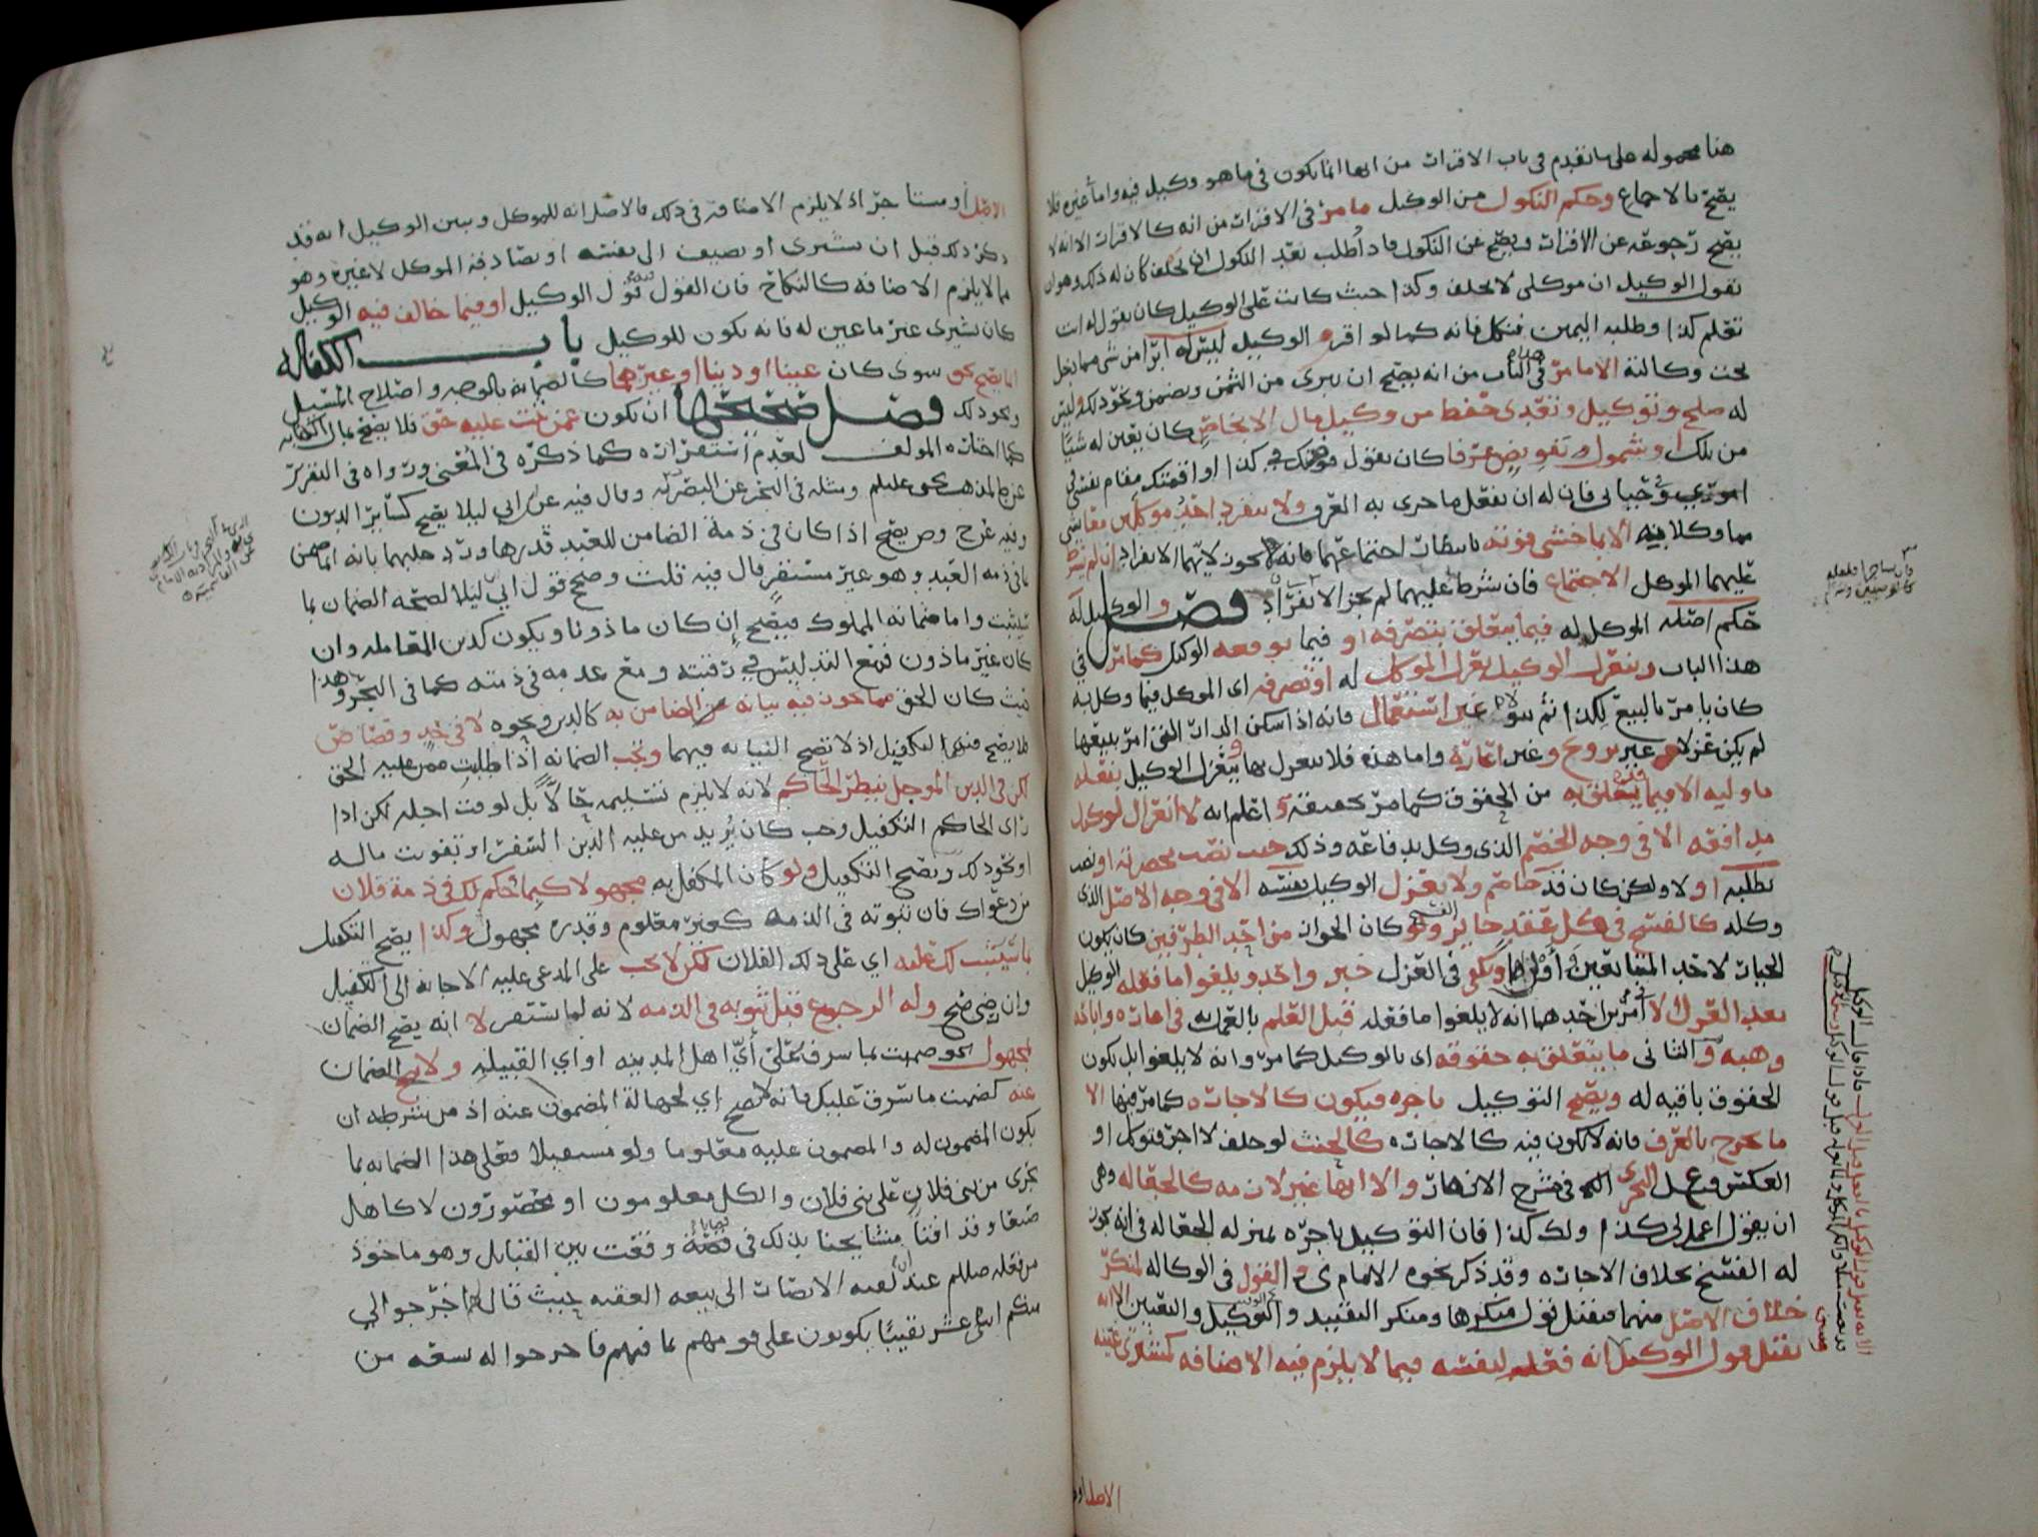 هنا محموله على ما تقدم في باب الاقرار من انها انما يكون في ما هو وكيل فيه واما غيره فلا
يصح بالاجماع وحكم النكول من الوكيل ما مر في الاقرار من انه كالاقرار الا انه لا
يصح رجوعه عن الاقرار ويصح عن النكول فاذا طلب بعد النكول ان يحلف كان له ذلك وهو ان
يقول الوكيل ان موكلي لا يحلف وكذا حيث كانت على الوكيل كان يقول له انت
تعلم كذا وطلبه اليمين فنكل فانه كما لو اقر و الوكيل ليس له ابرا من شي مما دخل
تحت وكالته الا ما مر في الباب من انه يصح ان يبرى من الثمن ويضمن ونحو ذلك وليس
له صلح وتوكيل وتعدى حفظ من وكيل مال الا بخاص كان يعين له شيئا
من تلك او بشمول وتفويض عرفا كان يقول فوضتك في كذا او اقمتك مقام نفسي في
اموري وحيالي فان له ان يفعل ما جرى به العرف ولا ينفرد احد موكلين معا في شي
مما وكلا فيه الا بما خشي فوته بانتظار اجتماعهما فانه يجوز لايهما الانفراد ان لم يشرط
عليهما الموكل الاجتماع فان شرط عليهما لم يجز الانفراد فصل والوكيل له
حكم اصله الموكل له فيما يتعلق بتصرفه او فيما يوقعه الوكيل كما مر في
هذا الباب وينعزل الوكيل بعزل الموكل له او تصرفه اى الموكل فيما وكل به
كان يامر بالبيع لكذا ثم غير استعمال فانه اذا سكن الدار التي امر ببيعها
لم يكن عزلا و غير تزوج وغير اعارة واما هذه فلا ينعزل بها وينعزل الوكيل بفعله
ما وليه الا فيما يتعلق به من الحقوق كما مر تحقيقه و اعلم انه لا انعزال لوكيل
مدافعه الا في وجه الخصم الذي وكل بدفاعه وذلك حيث نصب بحضرته او نصب
بطلبه او لا ولكن كان قد خاصم ولا يعزل الوكيل نفسه الا في وجه الاصل الذي
وكله كالفسخ في كل عقد جايز ولو كان الجواز من احد الطرفين كان يكون
الخيار لاحد المتبايعين او لهما ويكفي في العزل خبر واحد ويلغوا ما فعله الوكيل
بعد العزل الا امرين احدهما انه لا يلغوا ما فعله قبل العلم بالعزل به في اعارة واباحه
وهبه و الثاني ما يتعلق به حقوقه اى بالوكيل كما مر وانه لا يلغوا بل يكون
الحقوق باقيه له ويصح التوكيل باجره فيكون كالاجاره كما مر فيها الا
ما خرج بالعرف فانه لا يكون فيه كالاجاره كالحنث لو حلف لا اجر فتوكل او
العكس وعمل في شرح الازهار والا انها غير لازمه كالجعاله وهي
ان يقول اعمل لي كذا ولك كذا فان التوكيل باجره بمنزله الجعاله في انه يجوز
له الفسخ بخلاف الاجاره وقد ذكر نحوه الامام ى و القول في الوكاله لمنكر
خلاف الاصل منهما فيقبل قول منكرها ومنكر التقييد و التوكيل والتعيين الا انه
يقبل قول الوكيل انه فعله لنفسه فيما لا يلزم فيه الاضافه كيشتري عينه
الاصل او
الاصل او مستاجرا اذ لا يلزم الاضافة في ذلك فالاصل انه للموكل وبين الوكيل انه قد
ذكر ذلك قبل ان يشترى او يضيف الى نفسه او يصادقه الموكل لا غيره وهو
مما لا يلزم الاضافه كالنكاح فان القول قول الوكيل او فيما خالف فيه الوكيل
كان يشتري غير ما عين له فانه يكون للوكيل باب الكفاله
انما يصح بحق سوى كان عينا او دينا او غيرهما كالضمانه بالوجه واصلاح المسيل
ونحو ذلك فصل صحيحها ان يكون عمن ثبت عليه حق فلا يصح بمال الكتابه
كما اختاره المولف لعدم استقراره كما ذكره في المغني ورواه في التقرير
عن المذهب ومثله في البحر عن البصري وقال فيه عن ابي ليلا يصح كسائر الديون
وفيه عن ح وص يصح اذا كان في ذمة الضامن للعبد قدرها ورد عليهما بانه انما ضمن
بما في ذمه العبد وهو غير مستقر قال فيه قلت وصح قول ابي ليلا لصحه الضمان بما
سيثبت واما ضمانه المملوك فيصح ان كان ماذونا ويكون كدين المعامله وان
كان غير ماذون فمع التدليس في رقبته ومع عدمه في ذمته كما في البحر وهذا
حيث كان الحق مما يجوز فيه نيابه عن الضامن به كالدين ونحوه لا في حد وقصاص
فلا يصح منهما التكفيل اذ لا تصح النيابه فيهما ويجب الضمانه اذا طلبت ممن عليه الحق
لكن في الدين المؤجل بنظر الحاكم لانه لا يلزم تسليمه حالا بل لوقت اجله لكن اذا
راى الحاكم التكفيل وجب كان يريد من عليه الدين السفر او تفويت ماله
او نحو ذلك ويصح التكفيل ولو كان المكفل به مجهولا كبما يحكم لك في ذمة فلان
من دعواك فان ثبوته في الذمه غير معلوم وقدره مجهول وكذا يصح التكفيل
بما سيثبت لك عليه اي على ذلك الفلان لكن لا يجب على المدعى عليه الاجابه الى التكفيل
وان رضي صح وله الرجوع قبل ثبوته في الذمه لانه لما يستقر لا انه يصح الضمان
لمجهول نحو ضمنت بما سرف على أيّ اهل المدينه او اي القبيله ولا يصح الضمان
عنه كضمنت ما سرق عليك فانه لا يصح اي لجهالة المضمون عنه اذ من شرطه ان
يكون المضمون له والمضمون عليه معلوما ولو مستقبلا فعلى هذا الضمانه بما
يجرى من بني فلان على بني فلان والكل معلومون او محصورون لا كاهل
صنعا وقد افتا مشايخنا بذلك في قصة وقعت بين القبايل وهو ماخوذ
من فعله صللم عند لقيه الانصار الى بيعه العقبه حيث قال لهم اخرجوا الي
منكم اثنى عشر نقيبا يكونون على قومهم بما فيهم فاخرجوا له تسعه من